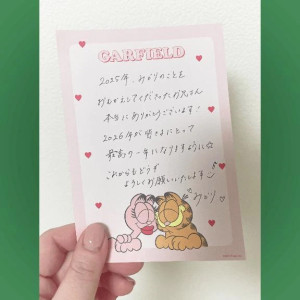 GARFIELD
2025年、みかりのことを
おむかえしてくださったお兄さん
本当にありがとうございます!
2026年が皆さまにとって
最高の一年になりますように☆
これからもどうぞ
よろしくお願いいたします
みかり